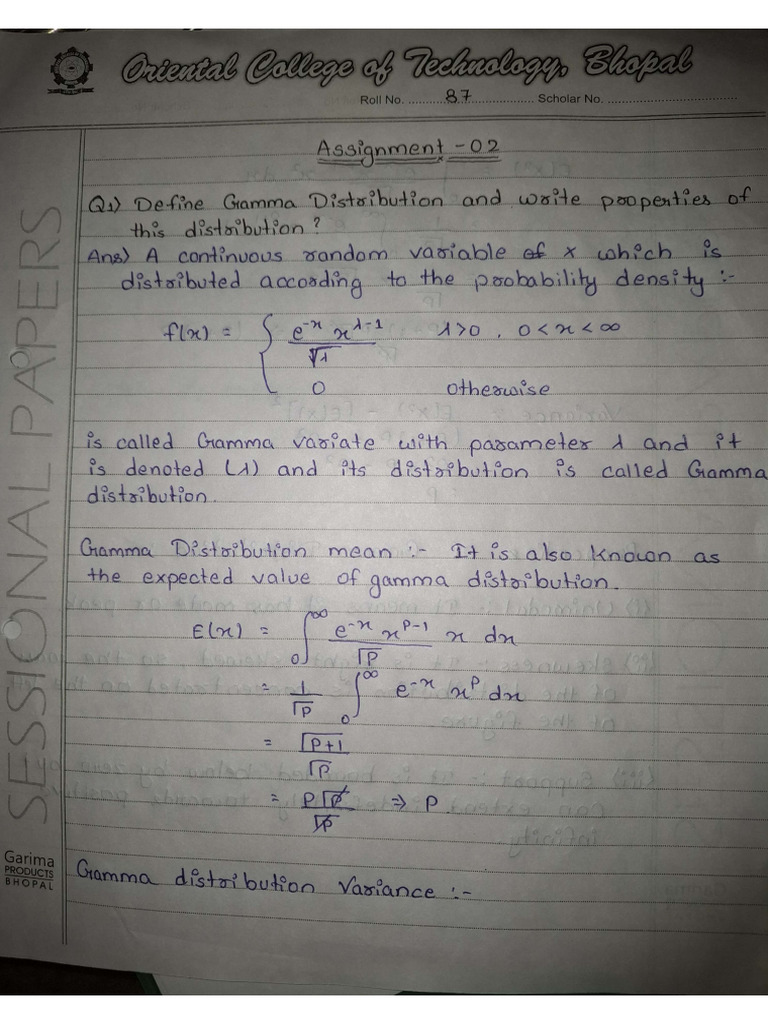 Oriental College of Technology, Bhopal
Roll No. ........... 87 .................. Scholar No. ....................................
Assignment - 02
Q1) Define Gamma Distribution and write properties of
this distribution?
Ans) A continuous random variable of x which is
distributed according to the probability density :-
f(x) = { e^-x x^λ-1 / Γλ    λ>0, 0<x<∞
0    otherwise
is called Gamma variate with parameter λ and it
is denoted (λ) and its distribution is called Gamma
distribution.
Gamma Distribution mean :- It is also known as
the expected value of gamma distribution.
E(x) = ∫0^∞ e^-x x^P-1 / ΓP x dx
= 1/ΓP ∫0^∞ e^-x x^P dx
= ΓP+1 / ΓP
= PΓP / ΓP ⇒ P.
Gamma distribution Variance :-
SESSIONAL PAPERS
Garima
PRODUCTS
BHOPAL